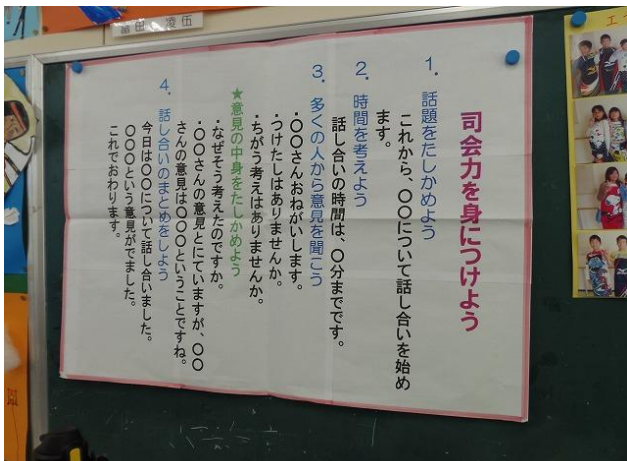 司会力を身につけよう
1．話題をたしかめよう
これから、〇〇について話し合いを始め
ます。
2．時間を考えよう
話し合いの時間は、〇分までです。
3．多くの人から意見を聞こう
・〇〇さんおねがいします。
・つけたしはありませんか。
・ちがう考えはありませんか。
★意見の中身をたしかめよう
・なぜそう考えたのですか。
・〇〇さんの意見とにていますが、〇〇
さんの意見は〇〇〇ということですね。
4．話し合いのまとめをしよう
今日は〇〇について話し合いました。
〇〇〇という意見がでました。
これでおわります。